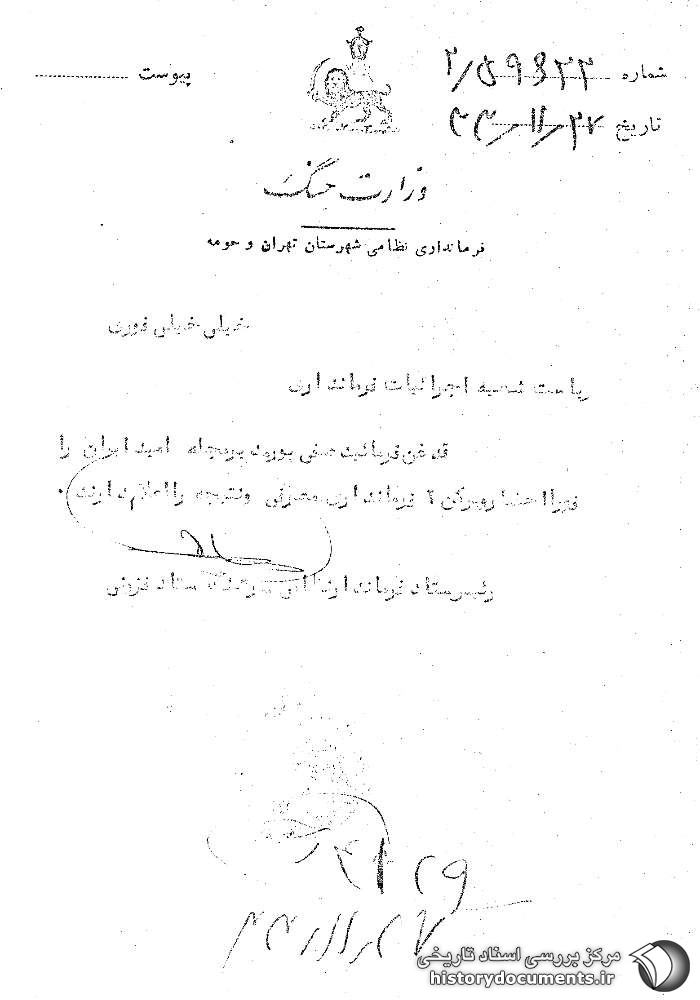 شماره ۲/۵۹۶۲۲
تاریخ ۳۳/۱۱/۲۷
پیوست
وزارت جنگ
فرمانداری نظامی شهرستان تهران و حومه
خیلی خیلی فوری
ریاست شعبه اجرائیات فرمانداری
قدغن فرمائید صفی پور مدیر مجله امید ایران را
فورا احضار و برکن ۲ فرمانداری معرفی و نتیجه را اعلام دارند .
رئیس ستاد فرمانداری
۳۳/۱۱/۲۷
مرکز بررسی اسناد تاریخی
historydocuments.ir